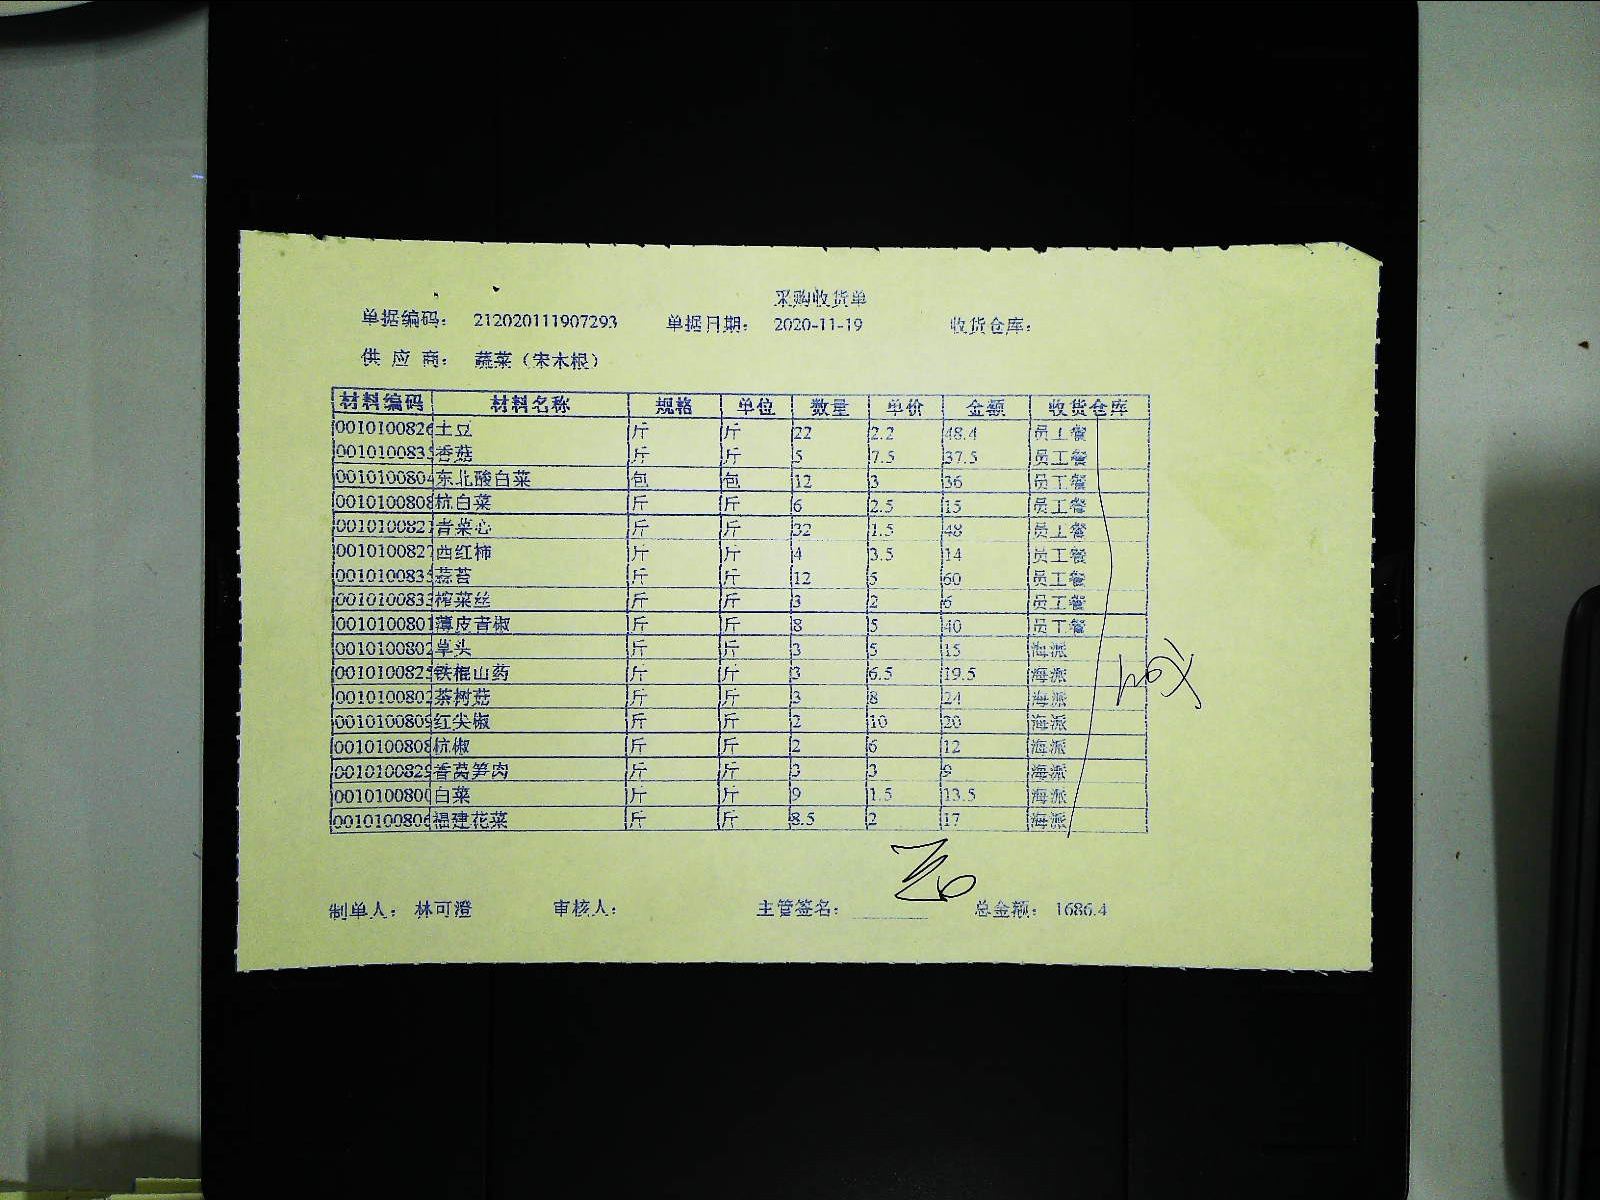 采购收货单
单据编码： 212020111907293 单据日期： 2020-11-19 收货仓库：
供 应 商： 蔬菜（宋木根）
材料编码 材料名称 规格 单位 数量 单价 金额 收货仓库
0010100826 土豆 斤 斤 22 2.2 48.4 员工餐
001010083 香菇 斤 斤 5 7.5 37.5 员工餐
0010100804 东北酸白菜 包 包 12 3 36 员工餐
0010100808 杭白菜 斤 斤 6 2.5 15 员工餐
001010082 青菜心 斤 斤 32 1.5 48 员工餐
0010100827 西红柿 斤 斤 4 3.5 14 员工餐
001010083 蒜苔 斤 斤 12 5 60 员工餐
001010083 榨菜丝 斤 斤 3 2 6 员工餐
0010100801 薄皮青椒 斤 斤 8 5 40 员工餐
0010100802 草头 斤 斤 3 5 15 海派
001010082 铁棍山药 斤 斤 3 6.5 19.5 海派
0010100802 茶树菇 斤 斤 3 8 24 海派
0010100809 红尖椒 斤 斤 2 10 20 海派
0010100808 杭椒 斤 斤 2 6 12 海派
0010100829 香莴笋肉 斤 斤 3 3 9 海派
0010100800 白菜 斤 斤 9 1.5 13.5 海派
0010100806 福建花菜 斤 斤 8.5 2 17 海派
制单人： 林可澄 审核人： 主管签名： 总金额： 1686.4